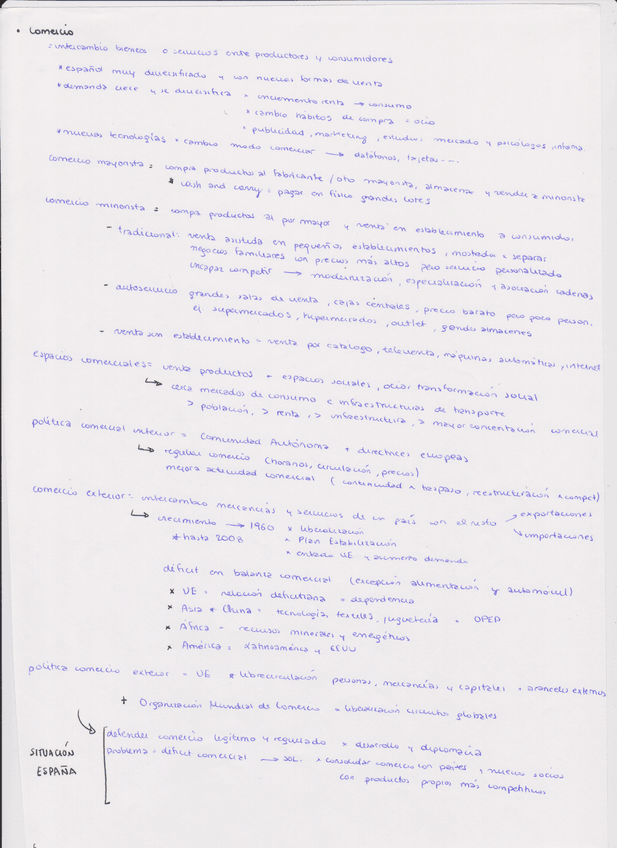 • Comercio
= intercambio bienes o servicios entre productores y consumidores
* español muy diversificado y con nuevas formas de venta
* demanda crece y se diversifica = incremento renta → consumo
* cambio hábitos de compra = ocio
* publicidad, marketing, estudios mercado y psicólogos, informa.
* nuevas tecnologías = cambio modo comerciar → datáfonos, tarjetas...
comercio mayorista = compra productos al fabricante / otro mayorista, almacenar y vender a minorista
* cash and carry = pagar en físico grandes lotes
comercio minorista = compra productos al por mayor y venta en establecimiento a consumidor
- tradicional: venta asistida en pequeños establecimientos, mostrador x separar
negocios familiares con precios más altos pero servicio personalizado
incapaz competir → modernización, especialización y asociación cadenas
- autoservicio grandes salas de venta, cajas centrales, precio barato pero poco person.
ej supermercados, hipermercados, outlet, grandes almacenes
- venta sin establecimiento = venta por catálogo, televenta, máquinas automáticas, internet
espacios comerciales = venta productos + espacios sociales, ocio, transformación social
↳ cerca mercados de consumo e infraestructuras de transporte
> población, > renta, > infraestructura, > mayor concentración comercial
política comercial interior = Comunidad Autónoma + directrices europeas
↳ regular comercio (horarios, circulación, precios)
mejora actividad comercial (continuidad x traspaso, reestructuración x compet)
comercio exterior = intercambio mercancías y servicios de un país con el resto → exportaciones
↘ importaciones
↳ crecimiento → 1960 x liberalización
* hasta 2008 x Plan Estabilización
x entrada UE y aumento demanda
déficit en balanza comercial (excepción alimentación y automóvil)
x UE = relación deficitaria = dependencia
x Asia * China = tecnología, textiles, juguetería + OPEP
x África = recursos minerales y energéticos
x América = Latinoamérica y EEUU
política comercio exterior = UE * libre circulación personas, mercancías y capitales + aranceles externos
+ Organización Mundial de Comercio = liberalización circuitos globales
SITUACIÓN ESPAÑA
defender comercio legítimo y regulado x desarrollo y diplomacia
problema = déficit comercial → SOL. x consolidar comercio con países y nuevos socios
con productos propios más competitivos